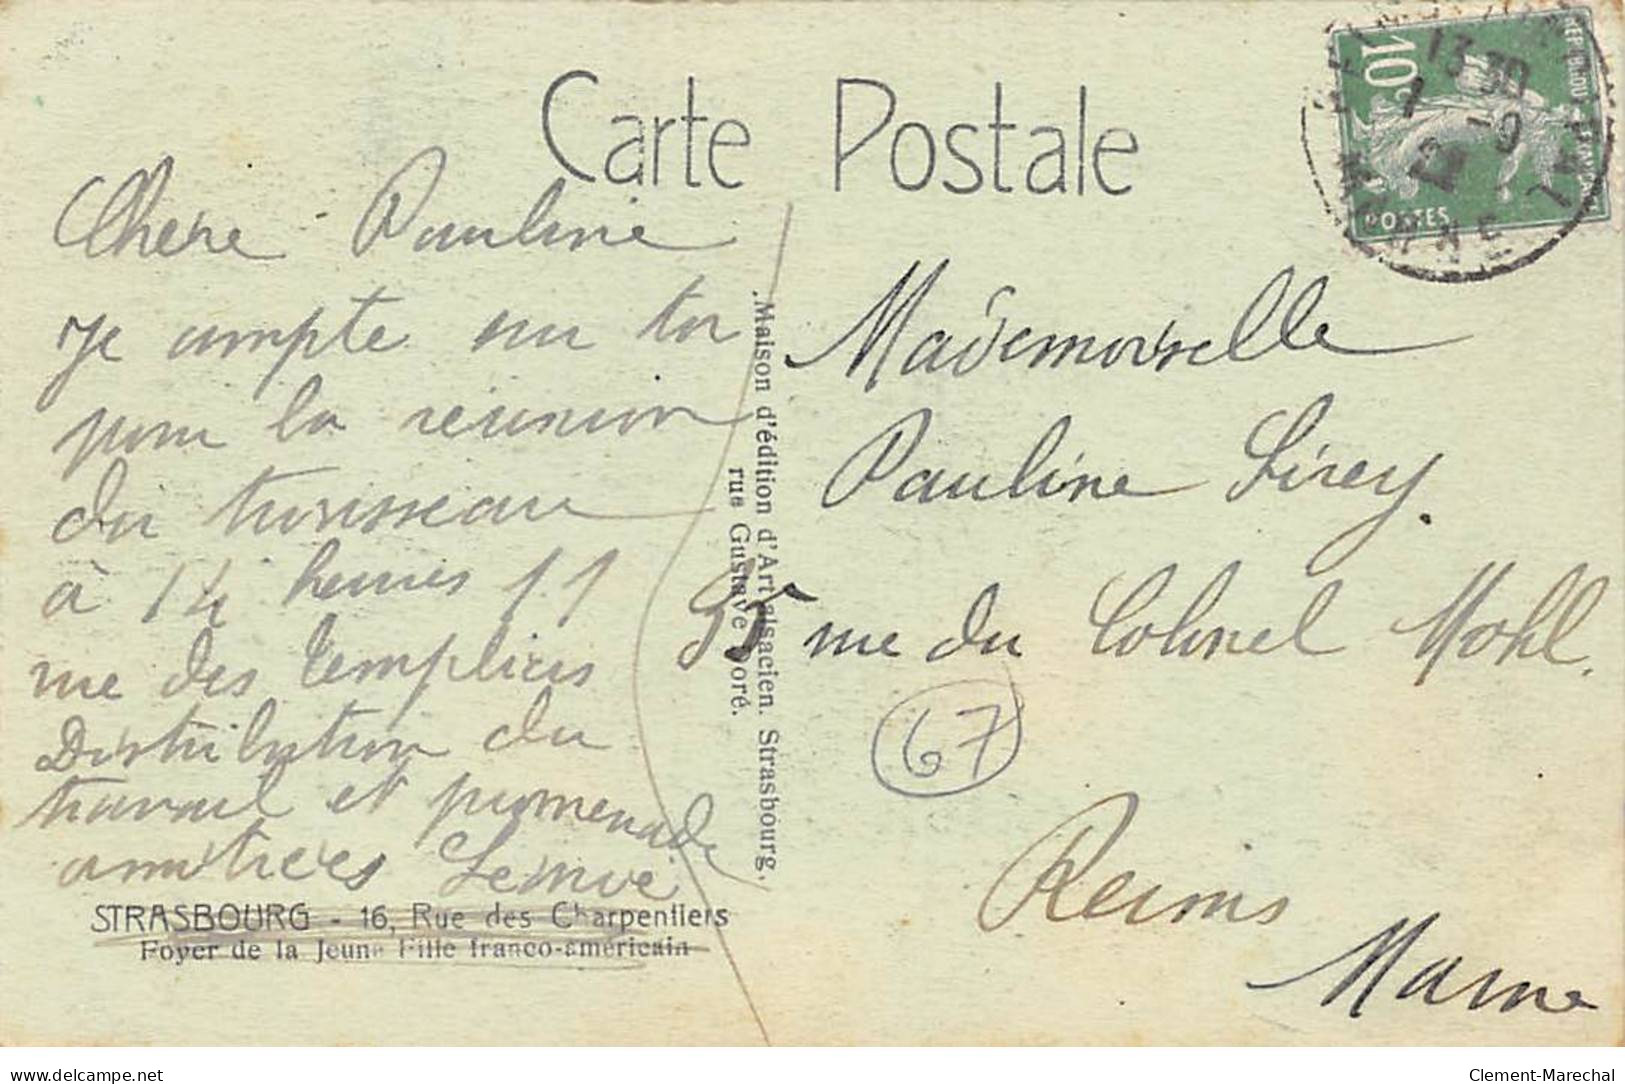 Carte Postale
REPUBLIQUE FRANCAISE
10c
POSTES
13 30
1 - 9
MARNE
Chère Pauline
Je compte sur toi
pour la réunion
du trousseau
à 14 heures 11
rue des Templiers
Distribution du
travail et promenade
amitiées
STRASBOURG - 16, Rue des Charpentiers
Foyer de la Jeune Fille franco-américain
Maison d'édition d'Art alsacien. Strasbourg.
rue Gustave Doré.
Mademoiselle
Pauline Sirey.
rue du Colonel Mohl.
67
Reims
Marne
delcampe.net
Clement-Marechal